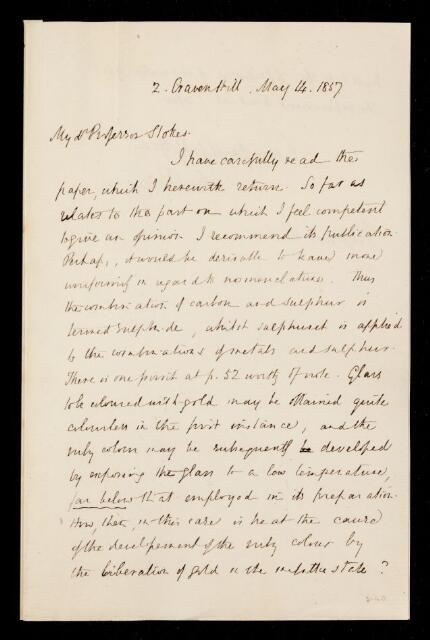 2. Craven Hill. May 14. 1857
My dr Professor Stokes.
I have carefully read the
paper, which I herewith return. So far as
relates to the part on which I feel competent
to give an opinion I recommend its publication.
Perhaps, it would be desirable to have more
uniformity in regard to nomenclature. Thus
the combination of carbon and sulphur is
termed sulphide, whilst sulphuret is applied
to the combinations of metals and sulphur.
There is one point at p. 52 worthy of note. Glass
to be coloured with gold may be obtained quite
colourless in the first instance, and the
ruby colour may be subsequently be developed
by exposing the glass to a low temperature,
far below that employed in its preparation.
How, then, in this case is heat the cause
of the developement of the ruby colour by
the liberation of gold in the metallic state?